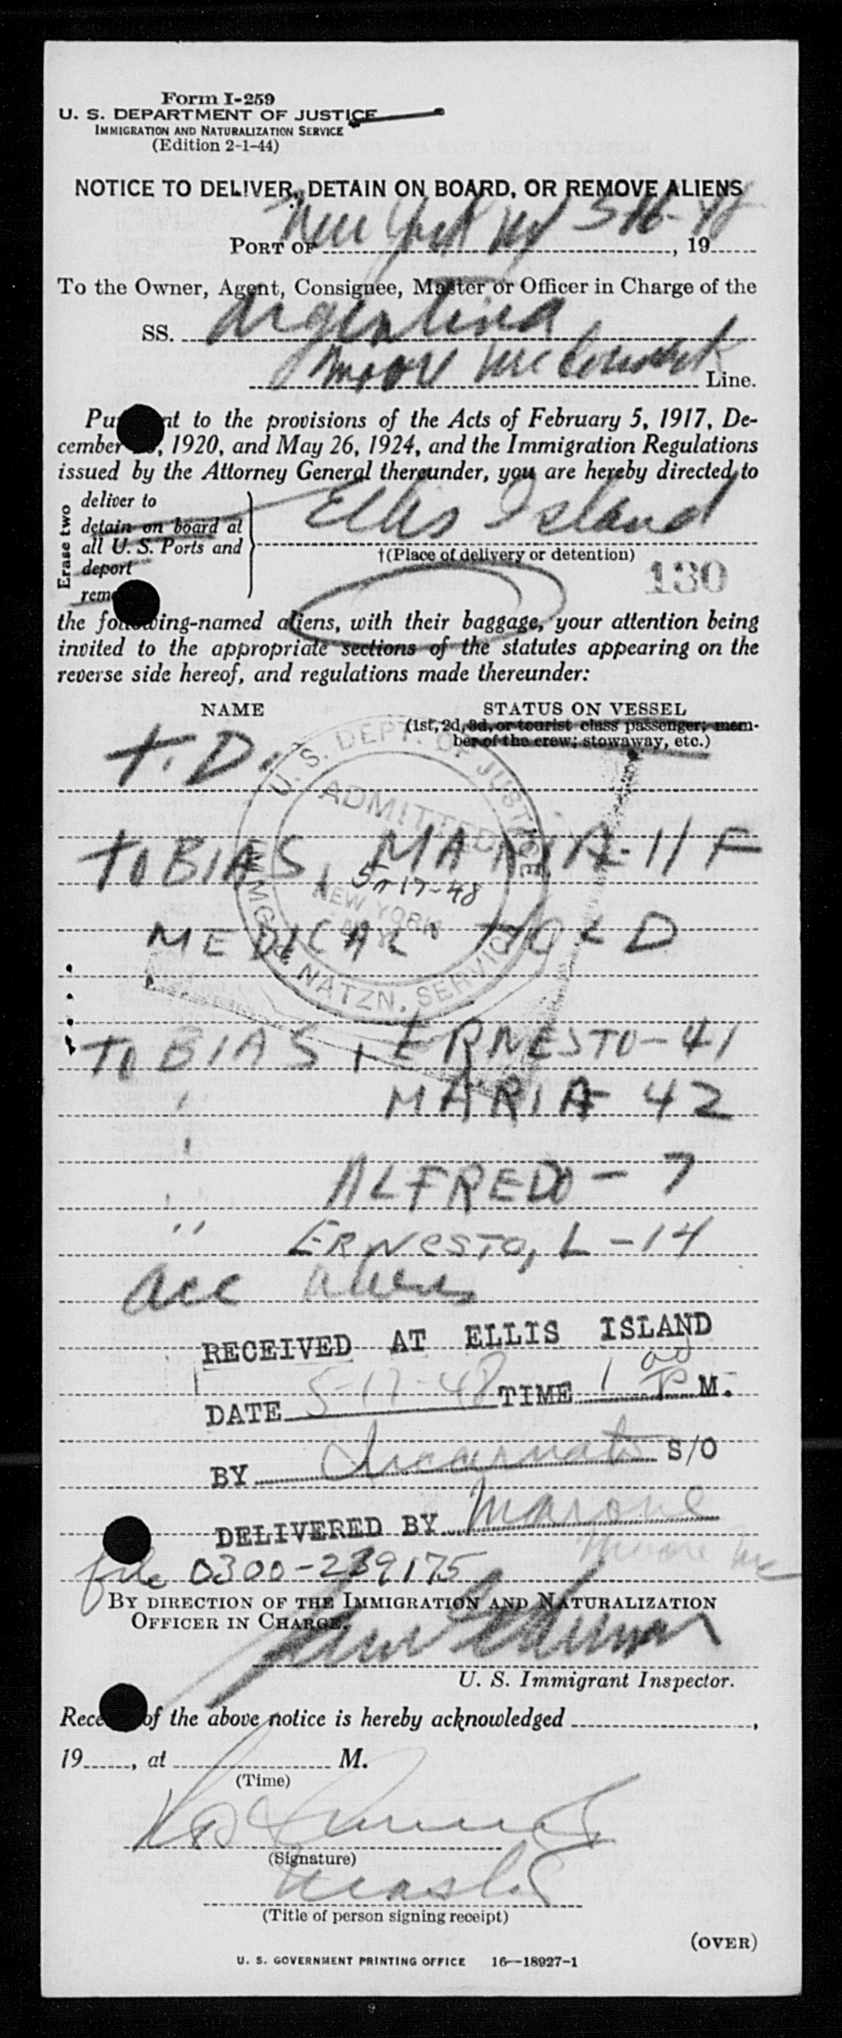 Form I-259
U. S. DEPARTMENT OF JUSTICE
IMMIGRATION AND NATURALIZATION SERVICE
(Edition 2-1-44)
NOTICE TO DELIVER, DETAIN ON BOARD, OR REMOVE ALIENS
PORT OF New York NY 5-16-48, 19
To the Owner, Agent, Consignee, Master or Officer in Charge of the
SS. Argentina
Moore McCormack Line.
Pu nt to the provisions of the Acts of February 5, 1917, De-
cember , 1920, and May 26, 1924, and the Immigration Regulations
issued by the Attorney General thereunder, you are hereby directed to
Erase two
deliver to
detain on board at
all U. S. Ports and
deport
rem
Ellis Island
†(Place of delivery or detention)
130
the following-named aliens, with their baggage, your attention being
invited to the appropriate sections of the statutes appearing on the
reverse side hereof, and regulations made thereunder:
NAME STATUS ON VESSEL
(1st, 2d, 3d, or tourist class passenger; mem-
ber of the crew; stowaway, etc.)
T. D.
U. S. DEPT. OF JUSTICE
ADMITTED
5-17-48
NEW YORK
N.Y.
IMMG. & NATZN. SERVICE
TOBIAS, MARIA-11 F
MEDICAL HOLD
TOBIAS, ERNESTO-41
" MARIA 42
" ALFREDO-7
" ERNESTO, L-14
Acc aliens
RECEIVED AT ELLIS ISLAND
DATE 5-17-48 TIME 1 P M.
BY Incarnato S/O
DELIVERED BY Marone
Moore Mc
file 0300-239175
BY DIRECTION OF THE IMMIGRATION AND NATURALIZATION
OFFICER IN CHARGE.
U. S. Immigrant Inspector.
Rece of the above notice is hereby acknowledged ,
19 , at M.
(Time)
(Signature)
Master
(Title of person signing receipt)
(OVER)
U. S. GOVERNMENT PRINTING OFFICE 16—18927-1
9